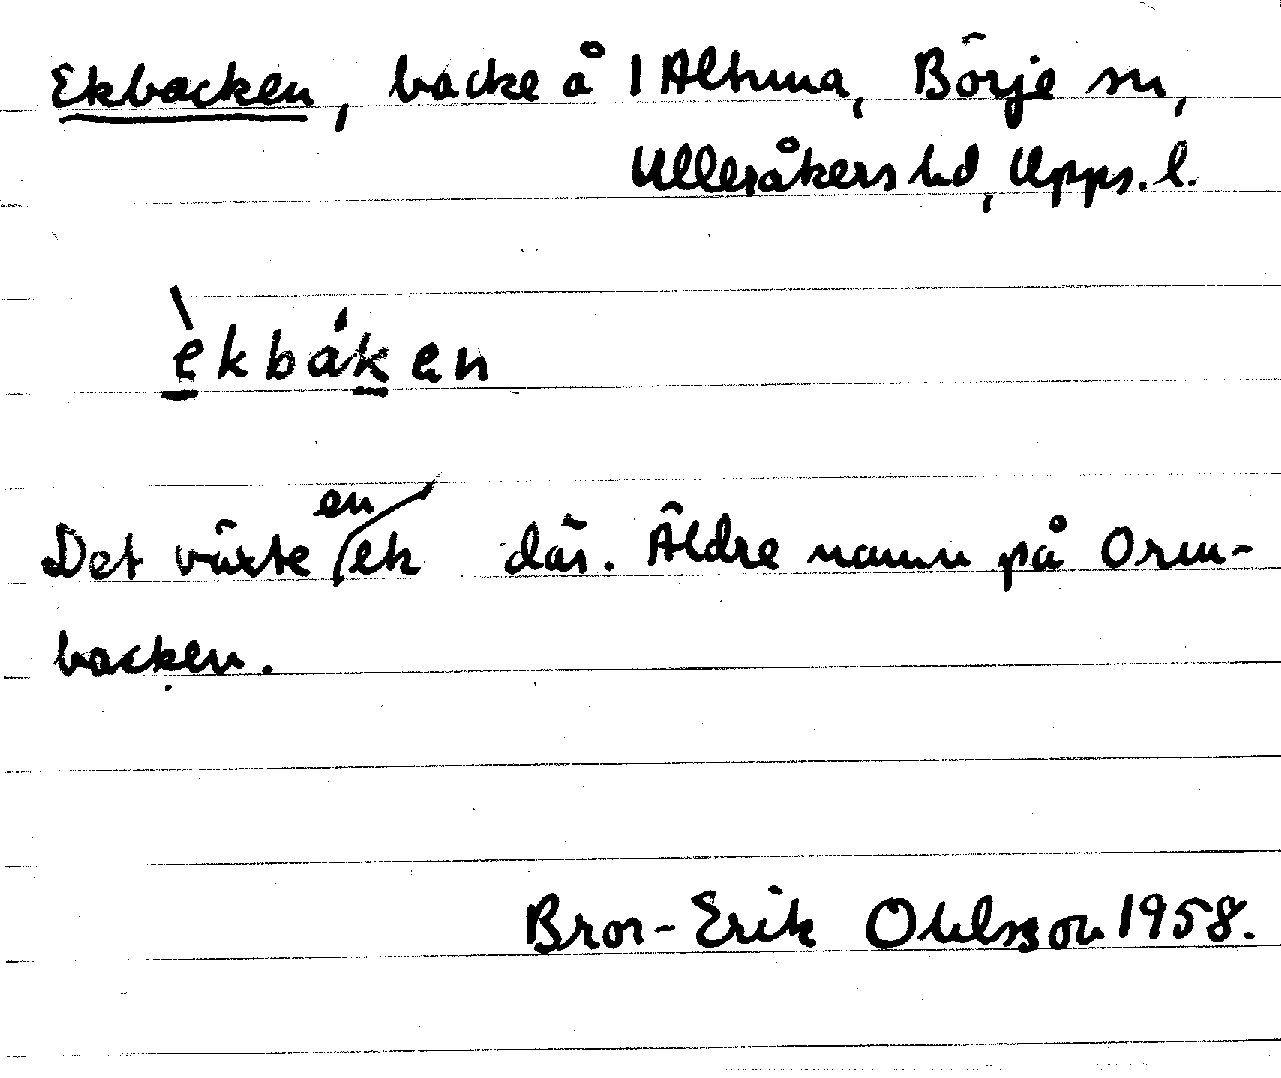 Ekbacken, backe å 1 Altuna, Börje sn,
Ulleråkers hd, Upps. l.
èkbáken
Det växte en ek där. Äldre namn på Orm-
backen.
Bror-Erik Ohlsson 1958.